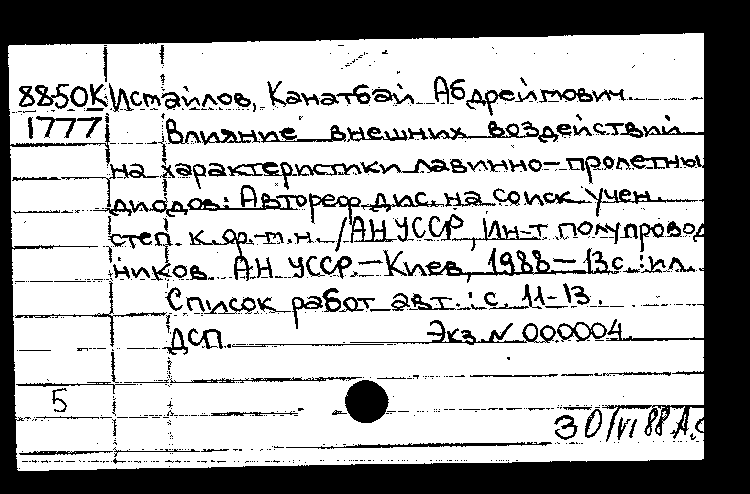 8850К Исмайлов, Канатбай Абдреймович.
1777 Влияние внешних воздействий
на характеристики лавинно-пролетны
диодов: Автореф. дис. на соиск. учен.
степ. к. ф.-м.н. /АН УССР, Ин-т полупровод
ников АН УССР.-Киев, 1988-13с.:ил.
Список работ авт.: с. 11-13.
ДСП. Экз. N 000004.
5
30/VI 88 А.